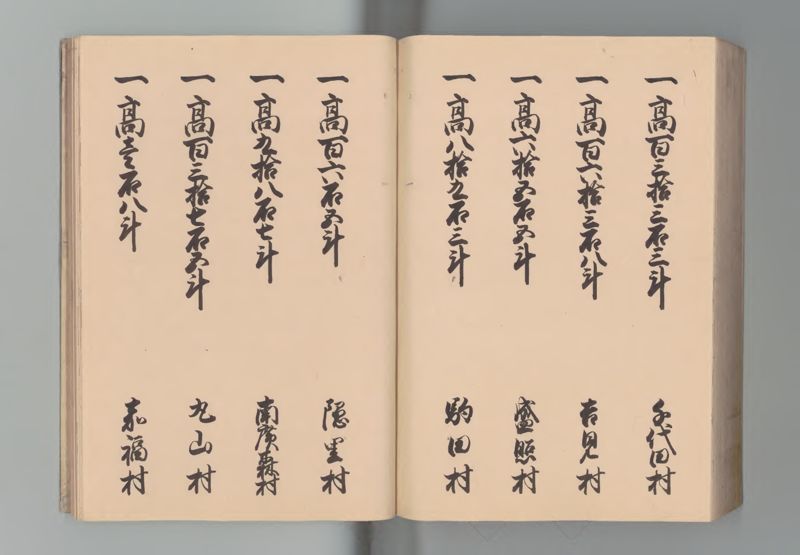 一高百三拾三石三斗 千代田村
一高百六拾三石八斗 吉見村
一高六拾五石五斗 盛照村
一高八拾九石三斗 駒田村
一高百六石五斗 隠里村
一高九拾八石七斗 南廣森村
一高百三拾七石五斗 丸山村
一高壱石八斗 嘉福村